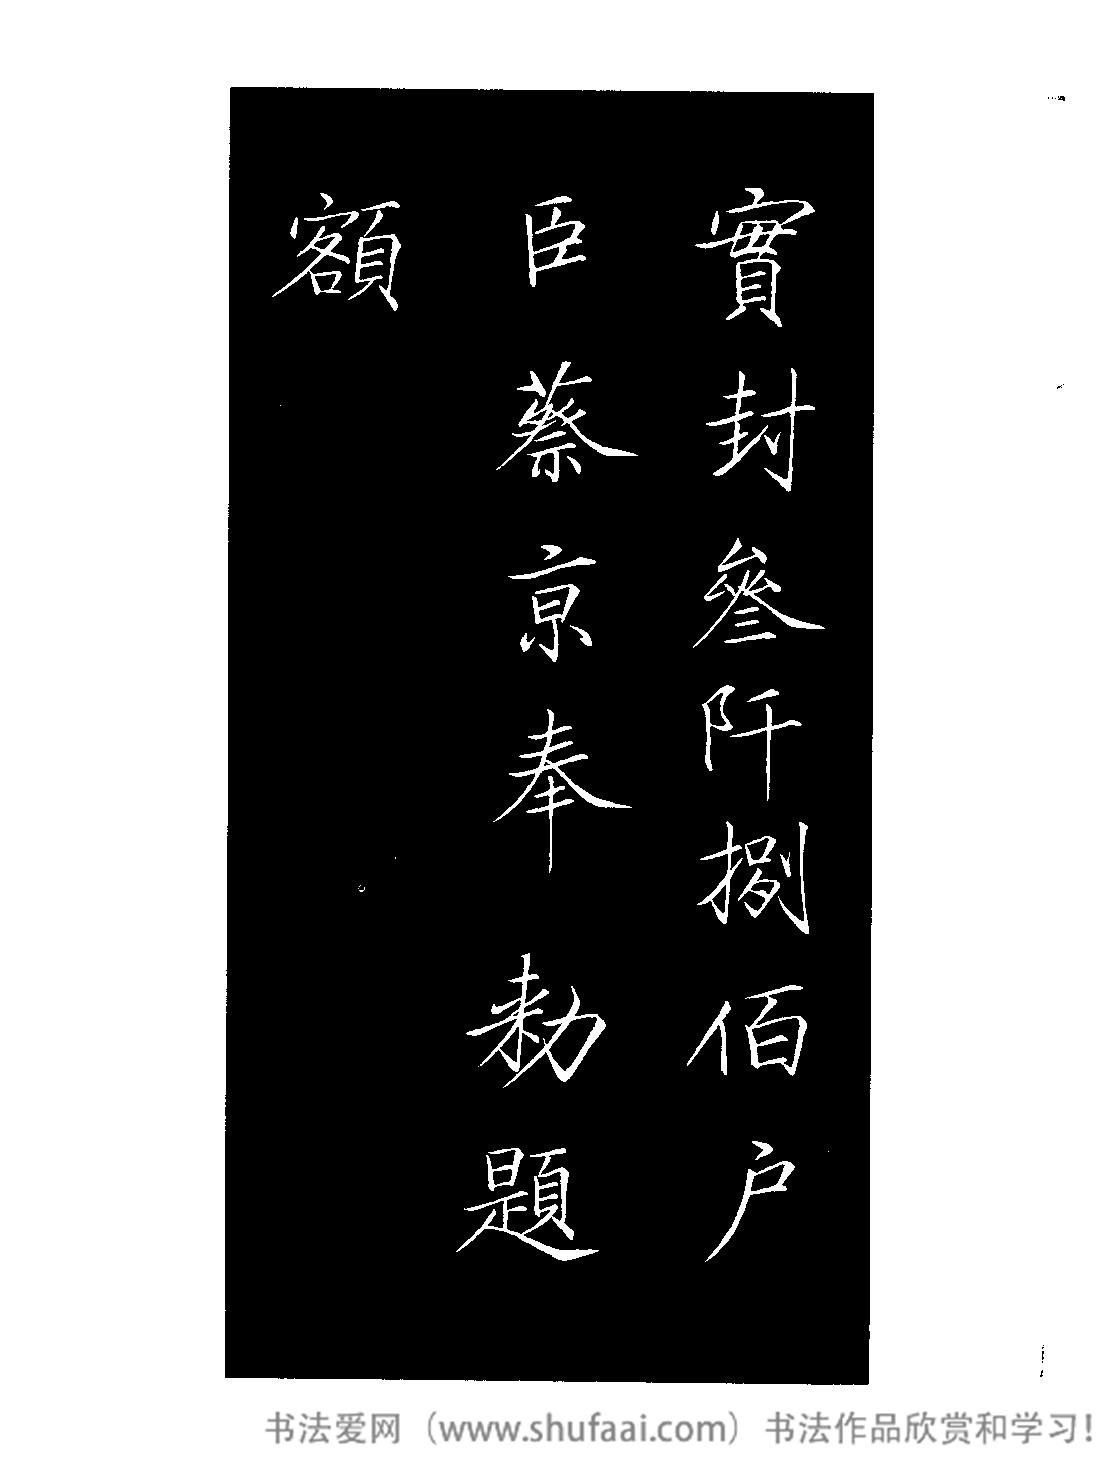 實封叄阡捌佰户
臣蔡京奉敕題
額
书法爱网（www.shufaai.com）书法作品欣赏和学习！